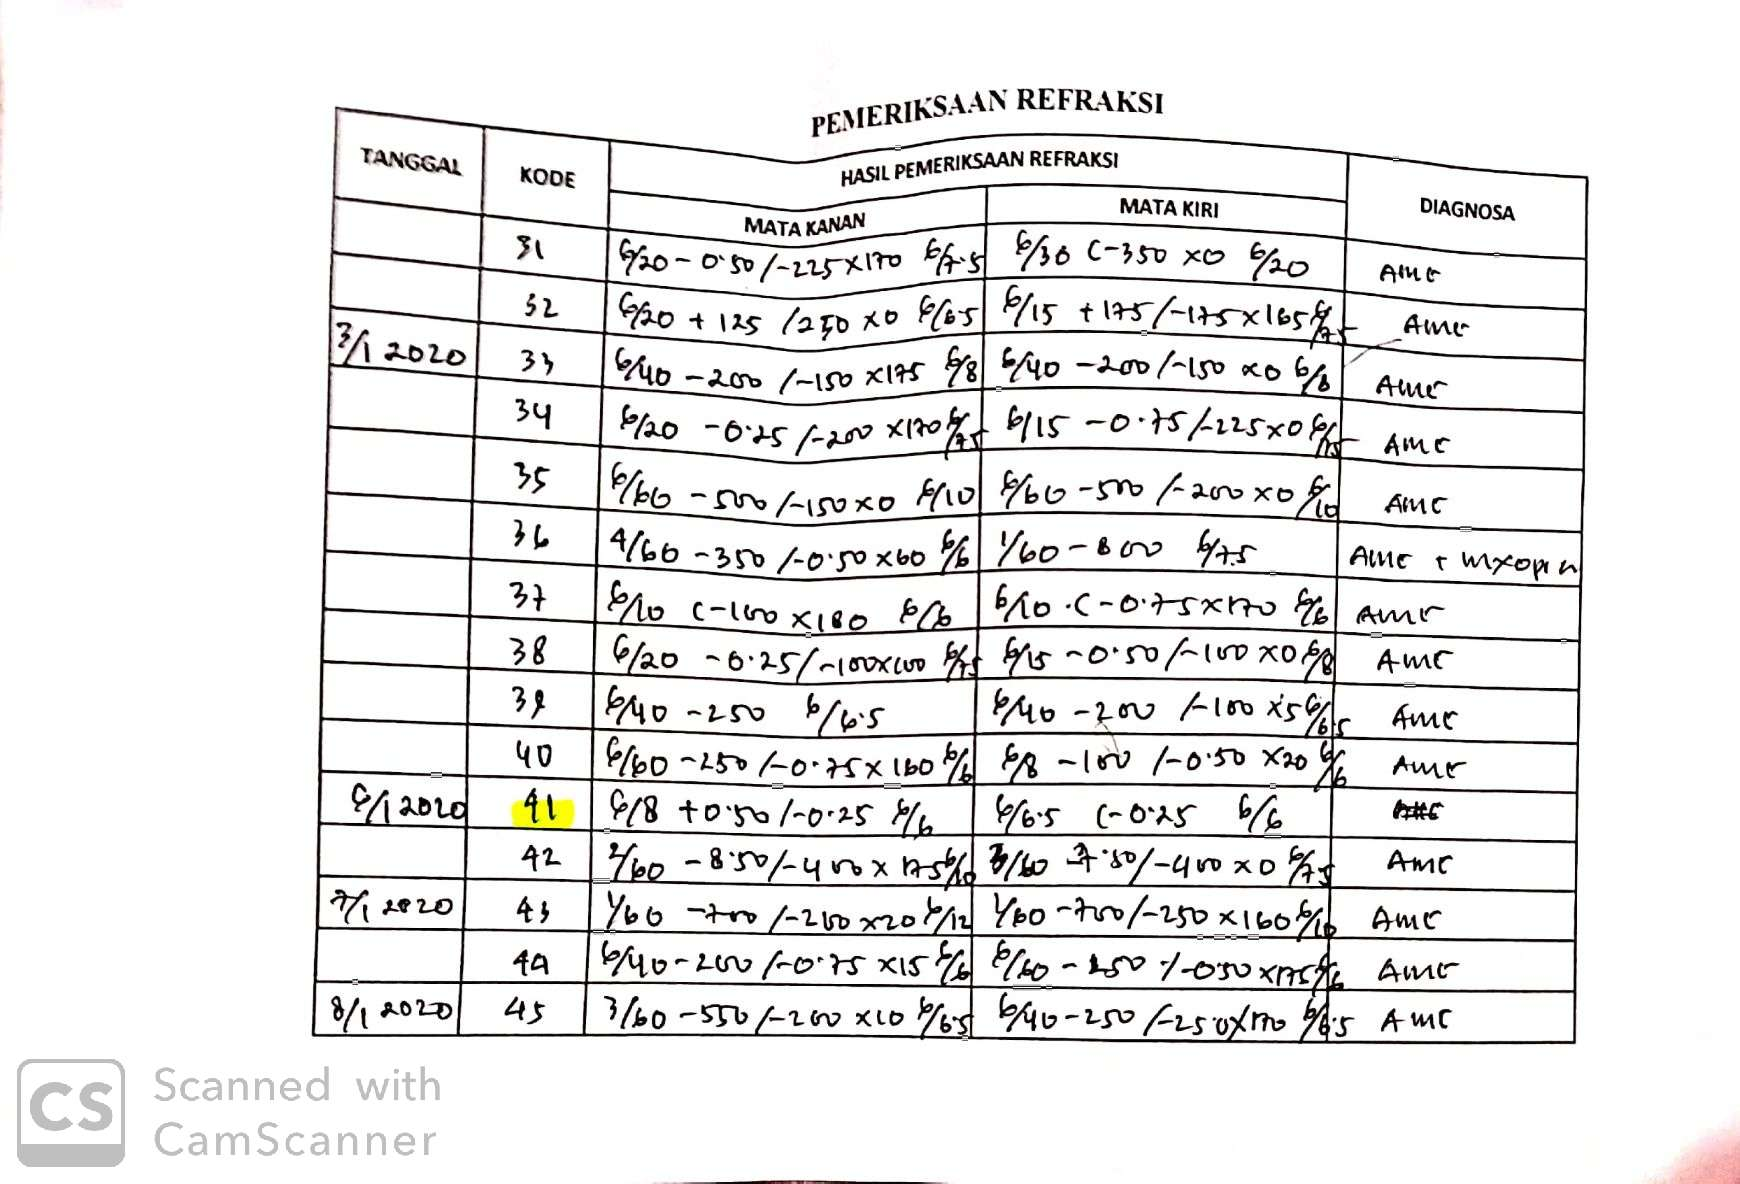 PEMERIKSAAN REFRAKSI
TANGGAL KODE HASIL PEMERIKSAAN REFRAKSI DIAGNOSA
MATA KANAN MATA KIRI
31 6/20 - 0.50 /-225 x 170 6/7.5 6/30 C-350 x0 6/20 AMC
32 6/20 + 125 /250 x0 6/6.5 6/15 + 175 /-175 x 165 6/7.5 AMC
3/1 2020 33 6/40 - 200 /-150 x175 6/8 6/40 - 200 /-150 x0 6/8 AMC
34 6/20 - 0.25 /-200 x170 6/7.5 6/15 - 0.75 /-225 x0 6/7.5 AMC
35 6/60 - 500 /-150 x0 6/10 6/60 - 500 /-200 x0 6/10 AMC
36 4/60 - 350 /-0.50 x60 6/6 1/60 - 800 6/7.5 AMC +
37 6/10 C-100 x180 6/6 6/10 .C-0.75 x170 6/6 AMC
38 6/20 - 0.25 /-100x100 6/7.5 6/15 - 0.50 /-100 x0 6/8 AMC
39 6/40 - 250 6/6.5 6/40 - 200 /-100 x5 6/6.5 AMC
40 6/60 - 250 /-0.75 x 160 6/6 6/8 - 100 /-0.50 x20 6/6 AMC
6/1 2020 41 6/8 +0.50 /-0.25 6/6 6/6.5 C-0.25 6/6
42 2/60 - 8.50 /-400 x 175 6/10 3/60 7.50 /-400 x0 6/7.5 AMC
7/1 2020 43 1/60 - 700 /-200 x20 6/12 1/60 - 700 /-250 x160 6/10 AMC
44 6/40 - 200 /-0.75 x15 6/6 6/60 - 250 /-050 x175 6/6 AMC
8/1 2020 45 3/60 - 550 /-200 x10 6/6.5 6/40 - 250 /-250x170 6/6.5 AMC
CS Scanned with
CamScanner